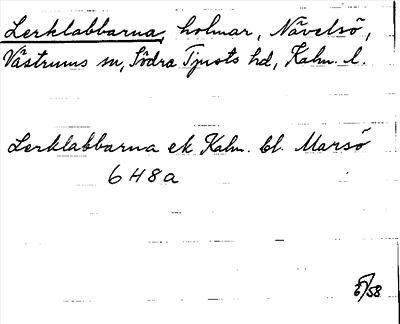 Lerklabbarna, holmar, Nävelsö,
Västrums sn, Södra Tjusts hd, Kalm. l.
Lerklabbarna ek Kalm. bl. Marsö
6 H 8 a
/58